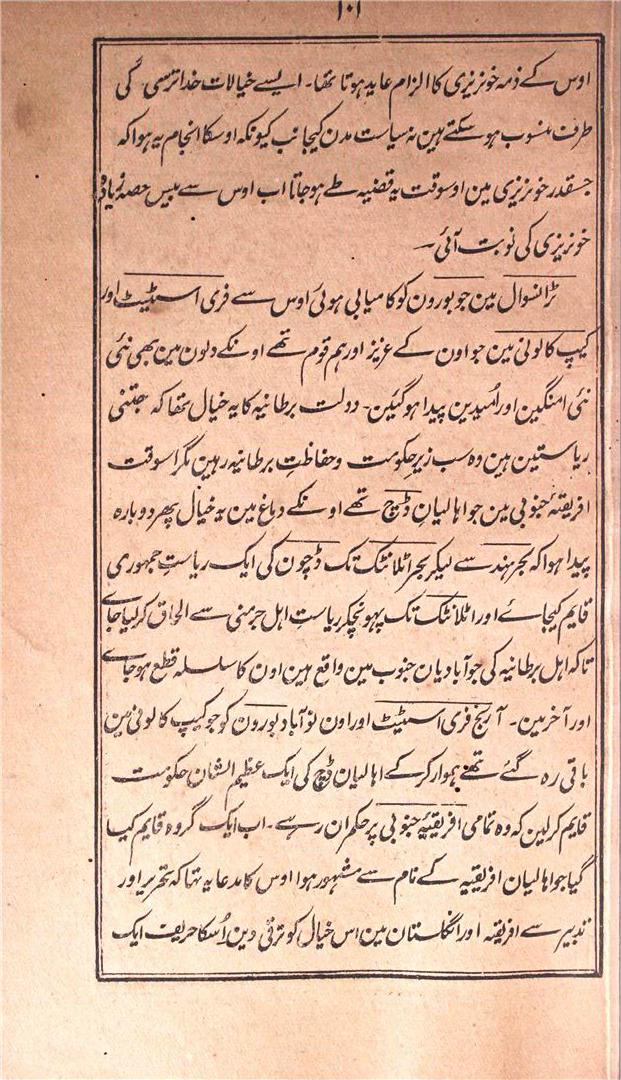 ۱۰۱
اوس کے ذمہ خونریزی کا الزام عاید ہوتا تھا۔ ایسے خیالات خدا ترسی کی
طرف منسوب ہو سکتے ہین نہ سیاست مدن کیجانب کیونکہ اوسکا انجام یہ ہوا کہ
جسقدر خونریزی مین اوسوقت یہ قضیہ طے ہوجاتا اب اوس سے بیس حصہ زیادہ
خونریزی کی نوبت آئی۔
ٹرانسوال مین جو بورون کو کامیابی ہوئی اوس سے فری اسٹیٹ اور
کیپ کالونی مین جو اون کے عزیز اور ہم قوم تھے اونکے دلون مین بھی نئی
نئی امنگین اور اُمیدین پیدا ہوگئین۔ دولت برطانیہ کا یہ خیال تھا کہ جتنی
ریاستین ہین وہ سب زیر حکومت وحفاظتِ برطانیہ رہین مگر اسوقت
افریقۂ جنوبی مین جو اہالیان ڈچ تھے اونکے دماغ مین یہ خیال پھر دوبارہ
پیدا ہوا کہ بحر ہند سے لیکر بحر اٹلانٹک تک ڈچون کی ایک ریاست جمہوری
قایم کیجائے اور اٹلانٹک تک پہونچکر ریاستِ اہل جرمنی سے الحاق کر لیا جاے
تاکہ اہل برطانیہ کی جو آبادیان جنوب مین واقع ہین اون کا سلسلہ قطع ہو جاے
اور آخر مین۔ آرینج فری اسٹیٹ اور اون نو آباد بورون کو جو کیپ کالونی مین
باقی رہ گئے تھے ہموار کر کے اہالیان ڈچ کی ایک عظیم الشان حکومت
قایم کرلین کہ وہ تمامی افریقیۂ جنوبی پر حکمران رہے۔ اب ایک گروہ قایم کیا
گیا جو اہالیان افریقیہ کے نام سے مشہور ہوا اوس کا مدعا یہ تھا کہ تحریر اور
تدبیر سے افریقہ اور انگلستان مین اس خیال کو ترقی دین اُسکا حریف ایک